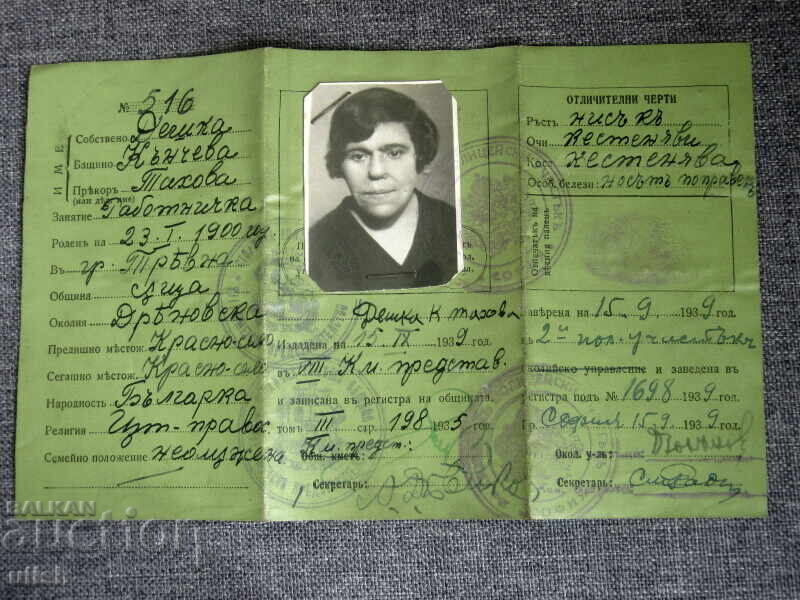 № 516
ИМЕ
Собствено Дешка
Бащино Кънчева
Прѣкоръ Тахова
(или дѣд. име)
Занятие Работничка
Роденъ на 23. I. 1900 год.
Въ гр. Трѣвна
Община
Околия Дрѣновска
Предишно местож. Красно-село
Сегашно местож. Красно-село
Народность Българка
Религия Изт-правос.
Семейно положение неомжена
Дешка К Тахова
Издадена на 15. IX 1939 год.
въ VIII Км. представ.
и записана в регистра на общината
томъ III стр. 198 1935 год.
Км. предст:
Общ. кметъ:
Секретарь:
ОТЛИЧИТЕЛНИ ЧЕРТИ
Ръстъ нисъкъ
Очи кестеняви
Коса кестенява
Особ. белези: носътъ поправенъ
Отпечатъкъ на
дѣсния палецъ
Заверена на 15. 9. 1939 год.
2 и пол. участъкъ
околийско управление и заведена в
регистра подъ № 1698 1939 год.
Гр. София 15. 9 1939 год.
Окол. у-лъ:
Секретарь:
BALKAN
auction
ulish